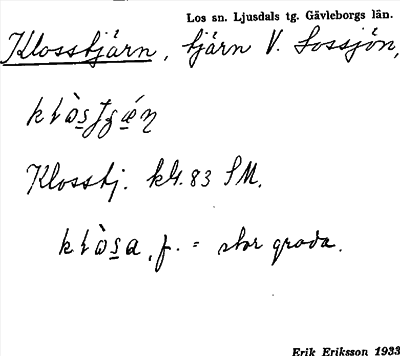 Los sn. Ljusdals tg. Gävleborgs län.
Klosstjärn, tjärn V. Lossjön,
Klosstj. kb. 83 SM.
f. = stor groda.
Erik Eriksson 1933